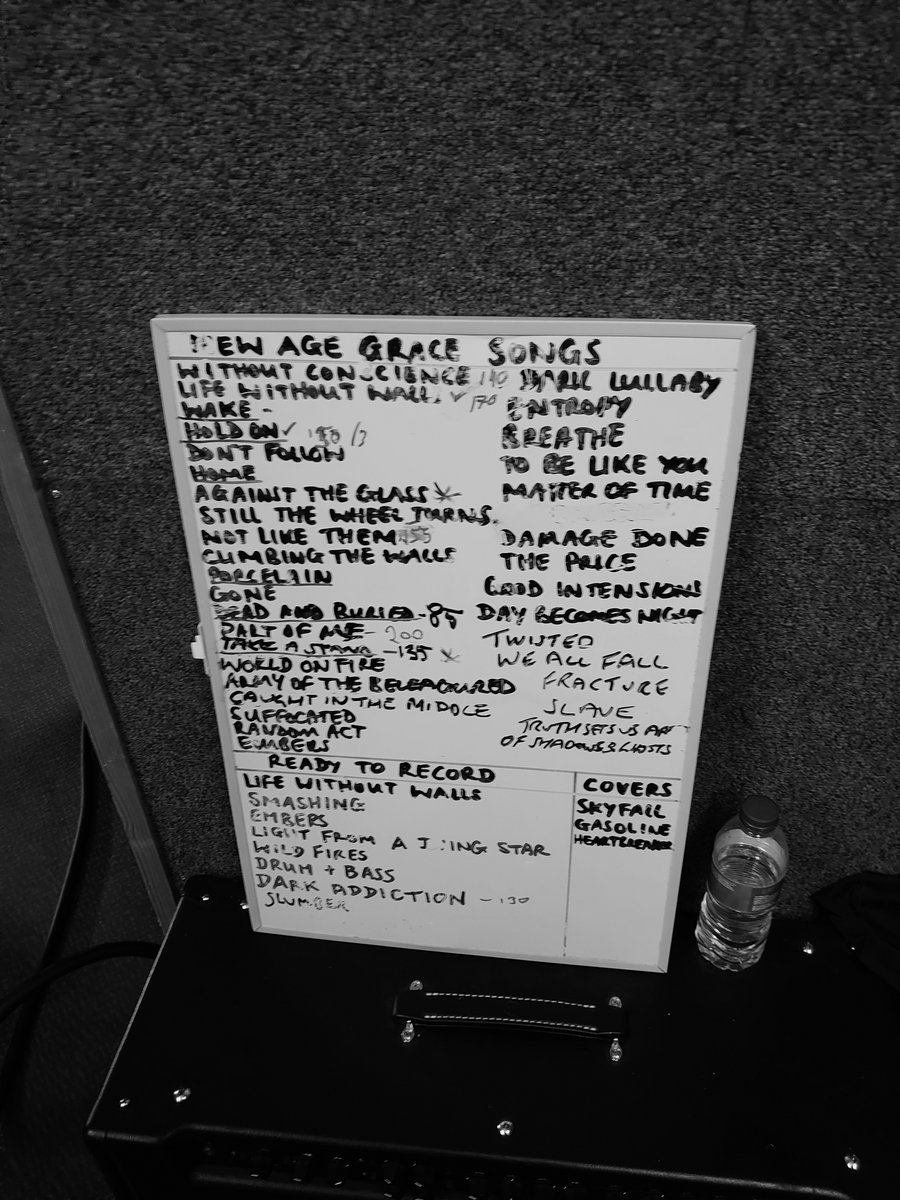 NEW AGE GRACE SONGS
WITHOUT CONSCIENCE 140
LIFE WITHOUT WALL. ✓ 170
WAKE -
HOLD ON ✓
DON'T FOLLOW
HOME
AGAINST THE GLASS *
STILL THE WHEEL TURNS.
NOT LIKE THEM 155
CLIMBING THE WALLS
PORCELAIN
GONE
DEAD AND BURIED - 85
PART OF ME - 200
TAKE A STAND - 135 *
WORLD ON FIRE
ARMY OF THE BELEAGURED
CAUGHT IN THE MIDDLE
SUFFOCATED
RANDOM ACT
EMBERS
DARK LULLABY
ENTROPY
BREATHE
TO BE LIKE YOU
MATTER OF TIME
DAMAGE DONE
THE PRICE
GOOD INTENSIONS
DAY BECOMES NIGHT
TWISTED
WE ALL FALL
FRACTURE
SLAVE
TRUTH SETS US
OF SHADOWS & GHOSTS
READY TO RECORD
LIFE WITHOUT WALLS
SMASHING
EMBERS
LIGHT FROM A STAR
WILD FIRES
DRUM + BASS
DARK ADDICTION - 130
SLUMBER
COVERS
SKYFALL
GASOLINE
HEARTBREAKER